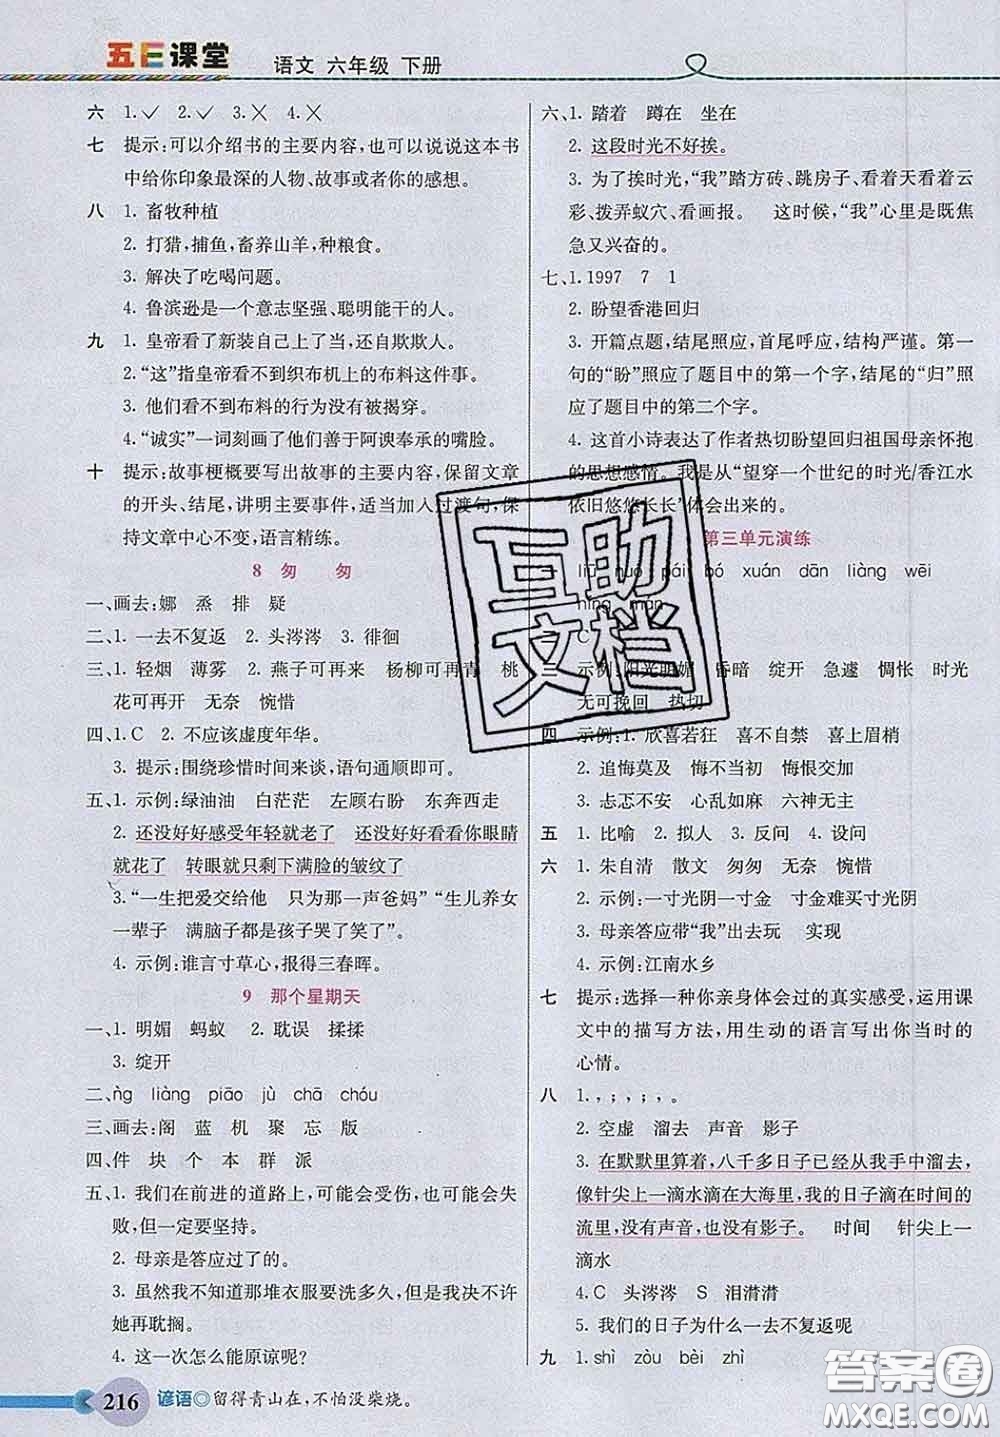 五E课堂
语文 六年级 下册
六 1.✓ 2.✓ 3.✗ 4.✗
七 提示:可以介绍书的主要内容,也可以说说这本书
中给你印象最深的人物、故事或者你的感想。
八 1. 畜牧种植
2. 打猎,捕鱼,畜养山羊,种粮食。
3. 解决了吃喝问题。
4. 鲁滨逊是一个意志坚强、聪明能干的人。
九 1. 皇帝看了新装自己上了当,还自欺欺人。
2.“这”指皇帝看不到织布机上的布料这件事。
3. 他们看不到布料的行为没有被揭穿。
4.“诚实”一词刻画了他们善于阿谀奉承的嘴脸。
十 提示:故事梗概要写出故事的主要内容,保留文章
的开头、结尾,讲明主要事件,适当加入过渡句,保
持文章中心不变,语言精练。
8 匆 匆
一、画去:娜 烝 排 疑
二、1. 一去不复返 2. 头涔涔 3. 徘徊
三、1. 轻烟 薄雾 2. 燕子可再来 杨柳可再青 桃
花可再开 无奈 惋惜
四、1. C 2. 不应该虚度年华。
3. 提示:围绕珍惜时间来谈,语句通顺即可。
五、1. 示例:绿油油 白茫茫 左顾右盼 东奔西走
2. 还没好好感受年轻就老了 还没好好看看你眼睛
就花了 转眼就只剩下满脸的皱纹了
3.“一生把爱交给他 只为那一声爸妈”“生儿养女
一辈子 满脑子都是孩子哭了笑了”。
4. 示例:谁言寸草心,报得三春晖。
9 那个星期天
一、1. 明媚 蚂蚁 2. 耽误 揉揉
3. 绽开
二、ǹg liàng piāo jù chā chóu
三、画去:阁 蓝 机 聚 忘 版
四、件 块 个 本 群 派
五、1. 我们在前进的道路上,可能会受伤,也可能会失
败,但一定要坚持。
2. 母亲是答应过了的。
3. 虽然我不知道那堆衣服要洗多久,但我决不许
她再耽搁。
4. 这一次怎么能原谅呢?
六、1. 踏着 蹲在 坐在
2. 这段时光不好挨。
3. 为了挨时光,“我”踏方砖、跳房子、看着天看着云
彩、拨弄蚁穴、看画报。 这时候,“我”心里是既焦
急又兴奋的。
七、1. 1997 7 1
2. 盼望香港回归
3. 开篇点题,结尾照应,首尾呼应,结构严谨。第一
句的“盼”照应了题目中的第一个字,结尾的“归”照
应了题目中的第二个字。
4. 这首小诗表达了作者热切盼望回归祖国母亲怀抱
的思想感情。我是从“望穿一个世纪的时光/香江水
依旧悠悠长长”体会出来的。
第三单元演练
一 liū nuó pái bó xuán dān liàng wēi
二 C
三 示例:阳光明媚 昏暗 绽开 急遽 惆怅 时光
无可挽回 热切
四 示例:1. 欣喜若狂 喜不自禁 喜上眉梢
2. 追悔莫及 悔不当初 悔恨交加
3. 忐忑不安 心乱如麻 六神无主
五 1. 比喻 2. 拟人 3. 反问 4. 设问
六 1. 朱自清 散文 匆匆 无奈 惋惜
2. 示例:一寸光阴一寸金 寸金难买寸光阴
3. 母亲答应带“我”出去玩 实现
4. 示例:江南水乡
七 提示:选择一种你亲身体会过的真实感受,运用课
文中的描写方法,用生动的语言写出你当时的
心情。
八 1. , ; , ; , 。
2. 空虚 溜去 声音 影子
3. 在默默里算着,八千多日子已经从我手中溜去,
像针尖上一滴水滴在大海里,我的日子滴在时间的
流里,没有声音,也没有影子。 时间 针尖上一
滴水
4. C 头涔涔 S 泪潸潸
5. 我们的日子为什么一去不复返呢
九 1. shì zòu bèi zhì
216 谚语◎留得青山在,不怕没柴烧。
互助
文档
答案圈
MXQE.COM